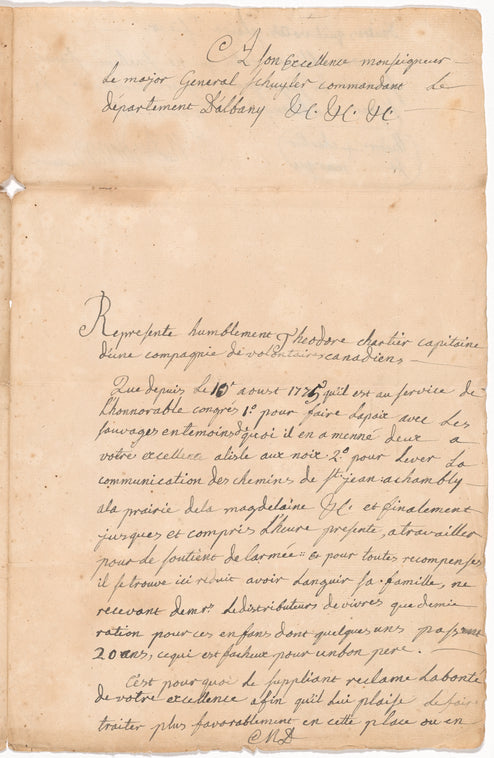 A son Excellence monseigneur
Le major General schuyler commandant Le
département D'albany &c. &c. &c.
Represente humblement Theodore chartier capitaine
d'une compagnie de volontaires canadiens
Que depuis Le 10e aoust 1775 quil est au service de
L'honnorable congres 1º pour faire lapaix avec Les
sauvages entemoins d'quoi il en a menné deux a
votre excellence alisle aux noix 2º pour Lever La
communication des chemins de st. jean achambly
ala prairie dela magdelaine &c. et finalement
jusques et compris L'heure presente, a travailler
pour le soutient de larmée = & pour toutes recompenses
il se trouve ici reduit avoir Languir sa famille, ne
recevant demrs. Ledistributeurs de vivres que demie
ration pour ces enfans dont quelques uns passent
20 ans, cequi est facheux pour unbon pere.
C'est pour quoi Le suppliant reclame Labonté
de votre excellence afin qu'il Lui plaise de faire
traiter plus favorablement en cette place ou en